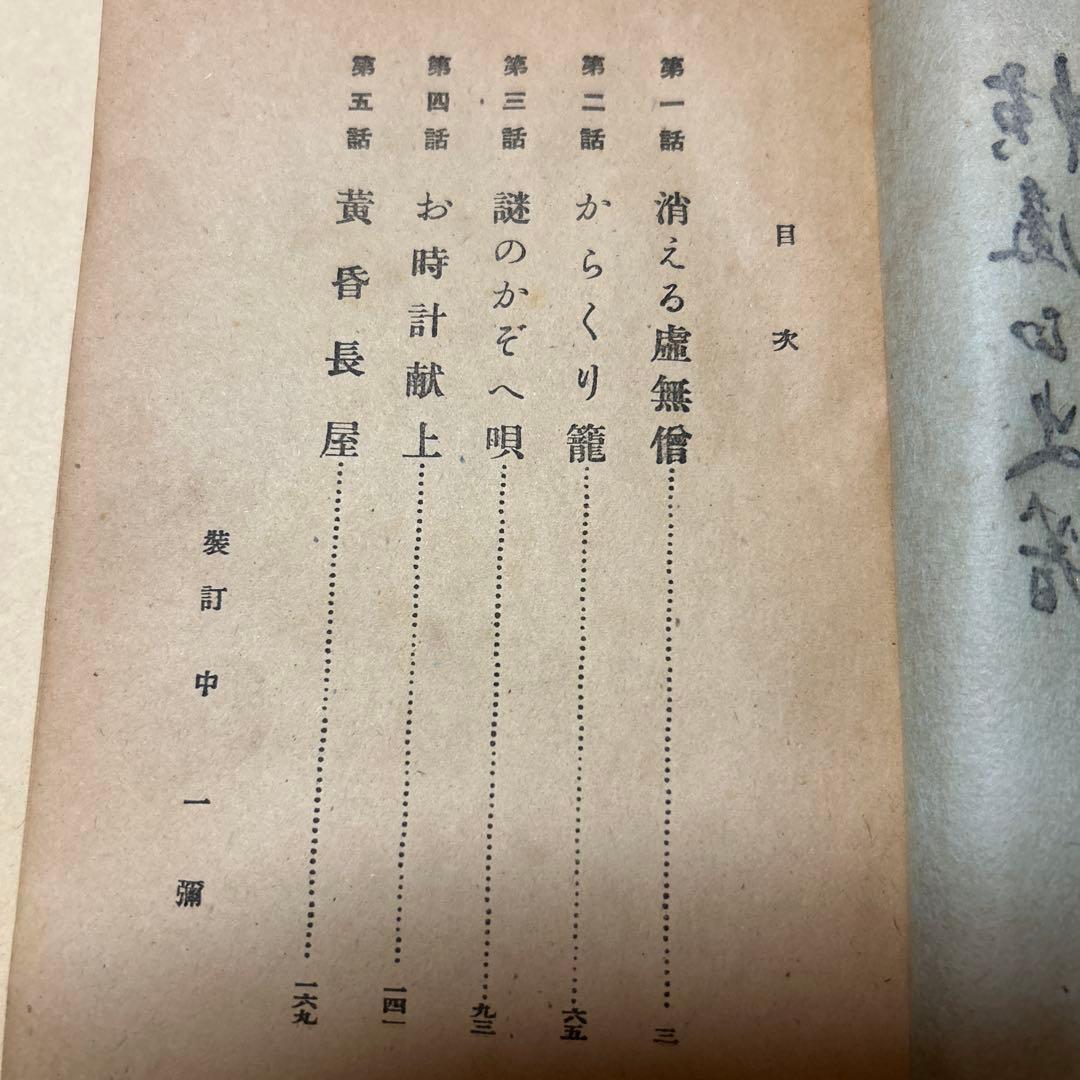 目次
第一話 消える虛無僧……三
第二話 からくり籠……六五
第三話 謎のかぞへ唄……九三
第四話 お時計献上……一四一
第五話 黃昏長屋……一六九
裝訂 中一彌